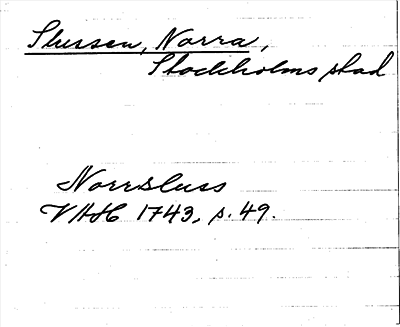 Slussen, Norra,
Stockholms stad
Norrsluss
VAH 1743, s. 49.